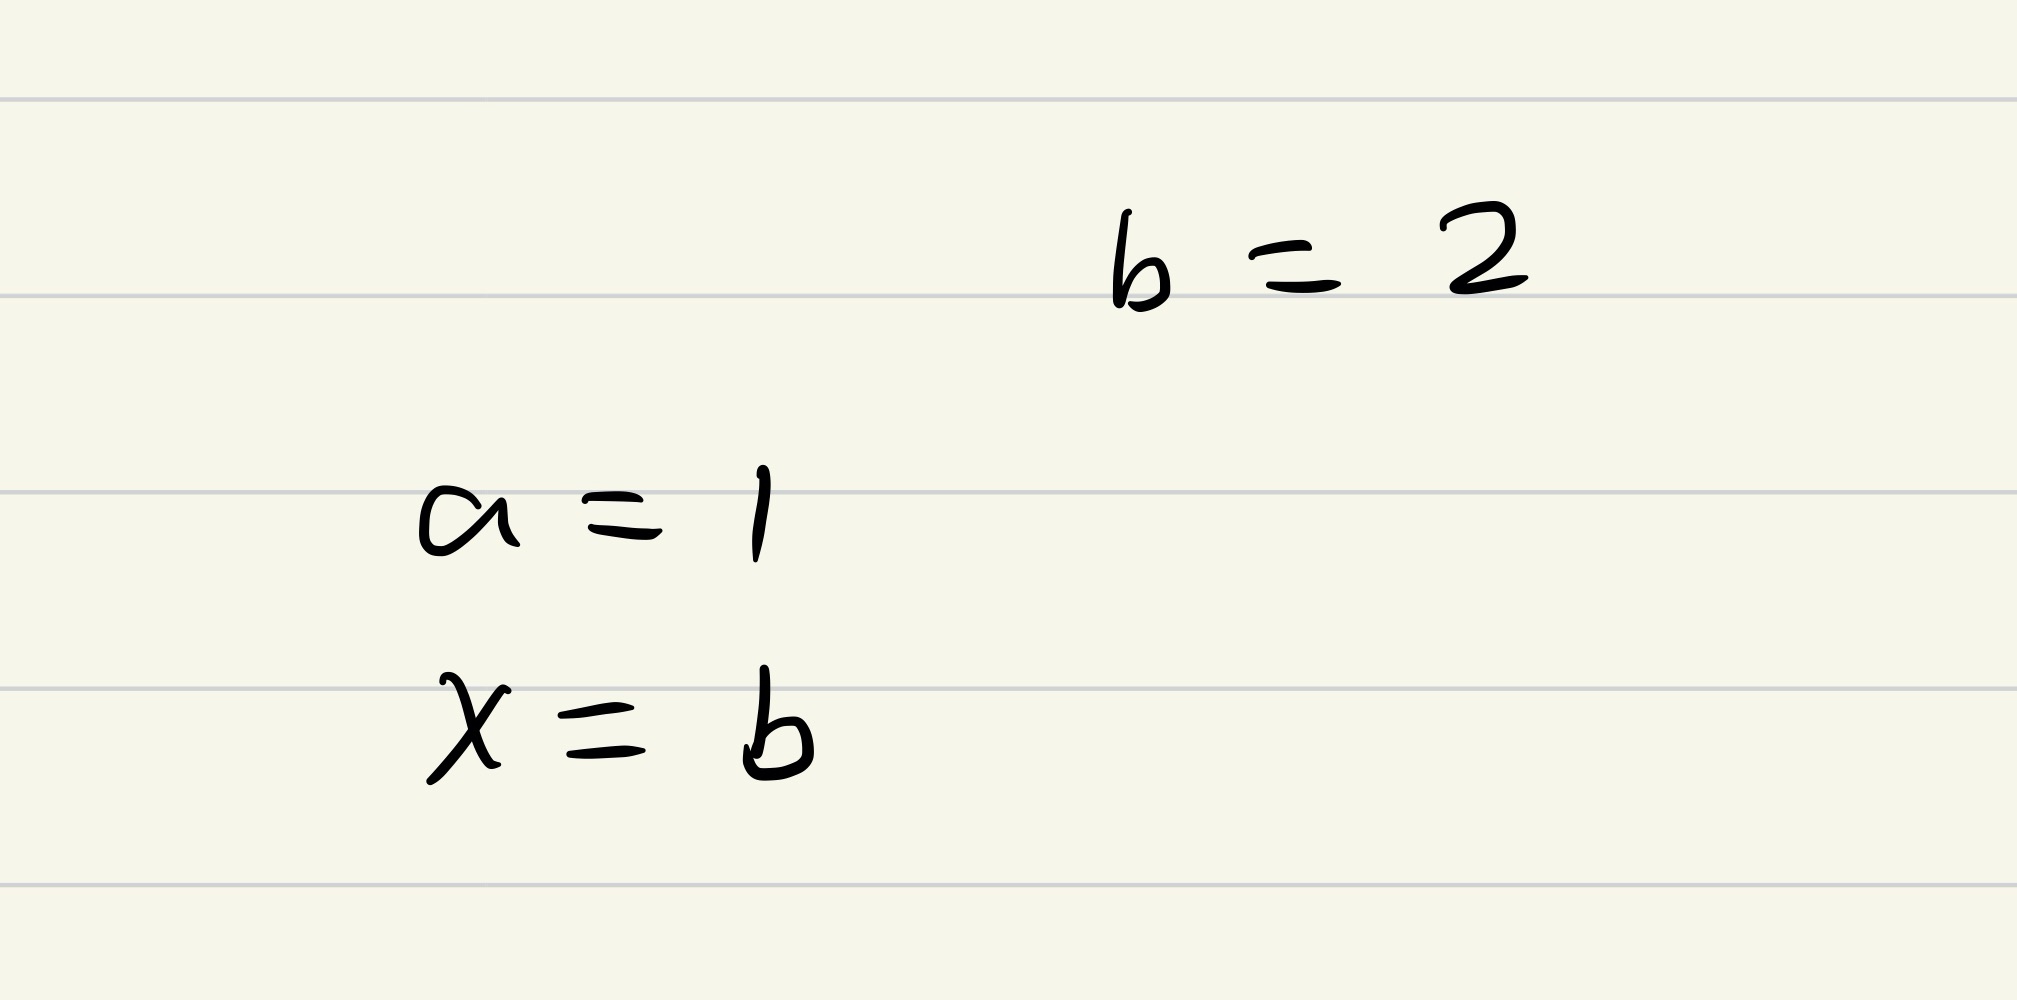 b = 2
a = 1
x = b